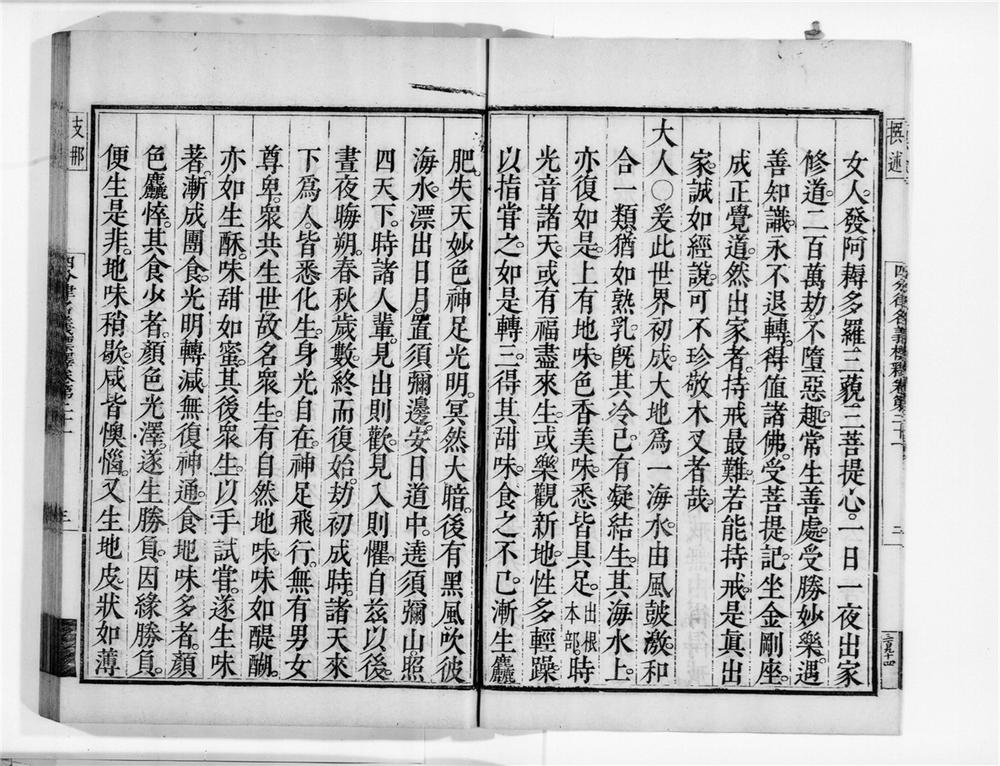 女人。發阿耨多羅三藐三菩提心。一日一夜出家
修道。二百萬劫不墮惡趣。常生善處。受勝妙樂。遇
善知識。永不退轉。得值諸佛。受菩提記。坐金剛座。
成正覺道。然出家者。持戒最難。若能持戒。是眞出
家。誠如經說。可不珍敬木叉者哉。
大人〇爰此世界初成。大地爲一海水。由風鼓激。和
合一類。猶如熟乳。旣其冷已。有凝結生。其海水上。
亦復如是。上有地味。色香美味。悉皆具足。出根本部。時
光音諸天。或有福盡來生。或樂觀新地。性多輕躁。
以指甞之。如是轉三。得其甜味。食之不已。漸生麤
肥。失天妙色神足光明。冥然大暗。後有黑風吹彼
海水。漂出日月。置須彌邊。安日道中。遶須彌山。照
四天下。時諸人輩。見出則歡。見入則懼。自茲以後。
晝夜晦朔。春秋歲數。終而復始。劫初成時。諸天來
下爲人。皆悉化生。身光自在。神足飛行。無有男女
尊卑。衆共生世。故名衆生。有自然地味。味如醍醐。
亦如生酥。味甜如蜜。其後衆生。以手試甞。遂生味
著。漸成團食。光明轉減。無復神通。食地味多者。顏
色麤悴。其食少者。顏色光澤。遂生勝負。因緣勝負。
便生是非。地味稍歇。咸皆懊惱。又生地皮。狀如薄
支那
撰述
三